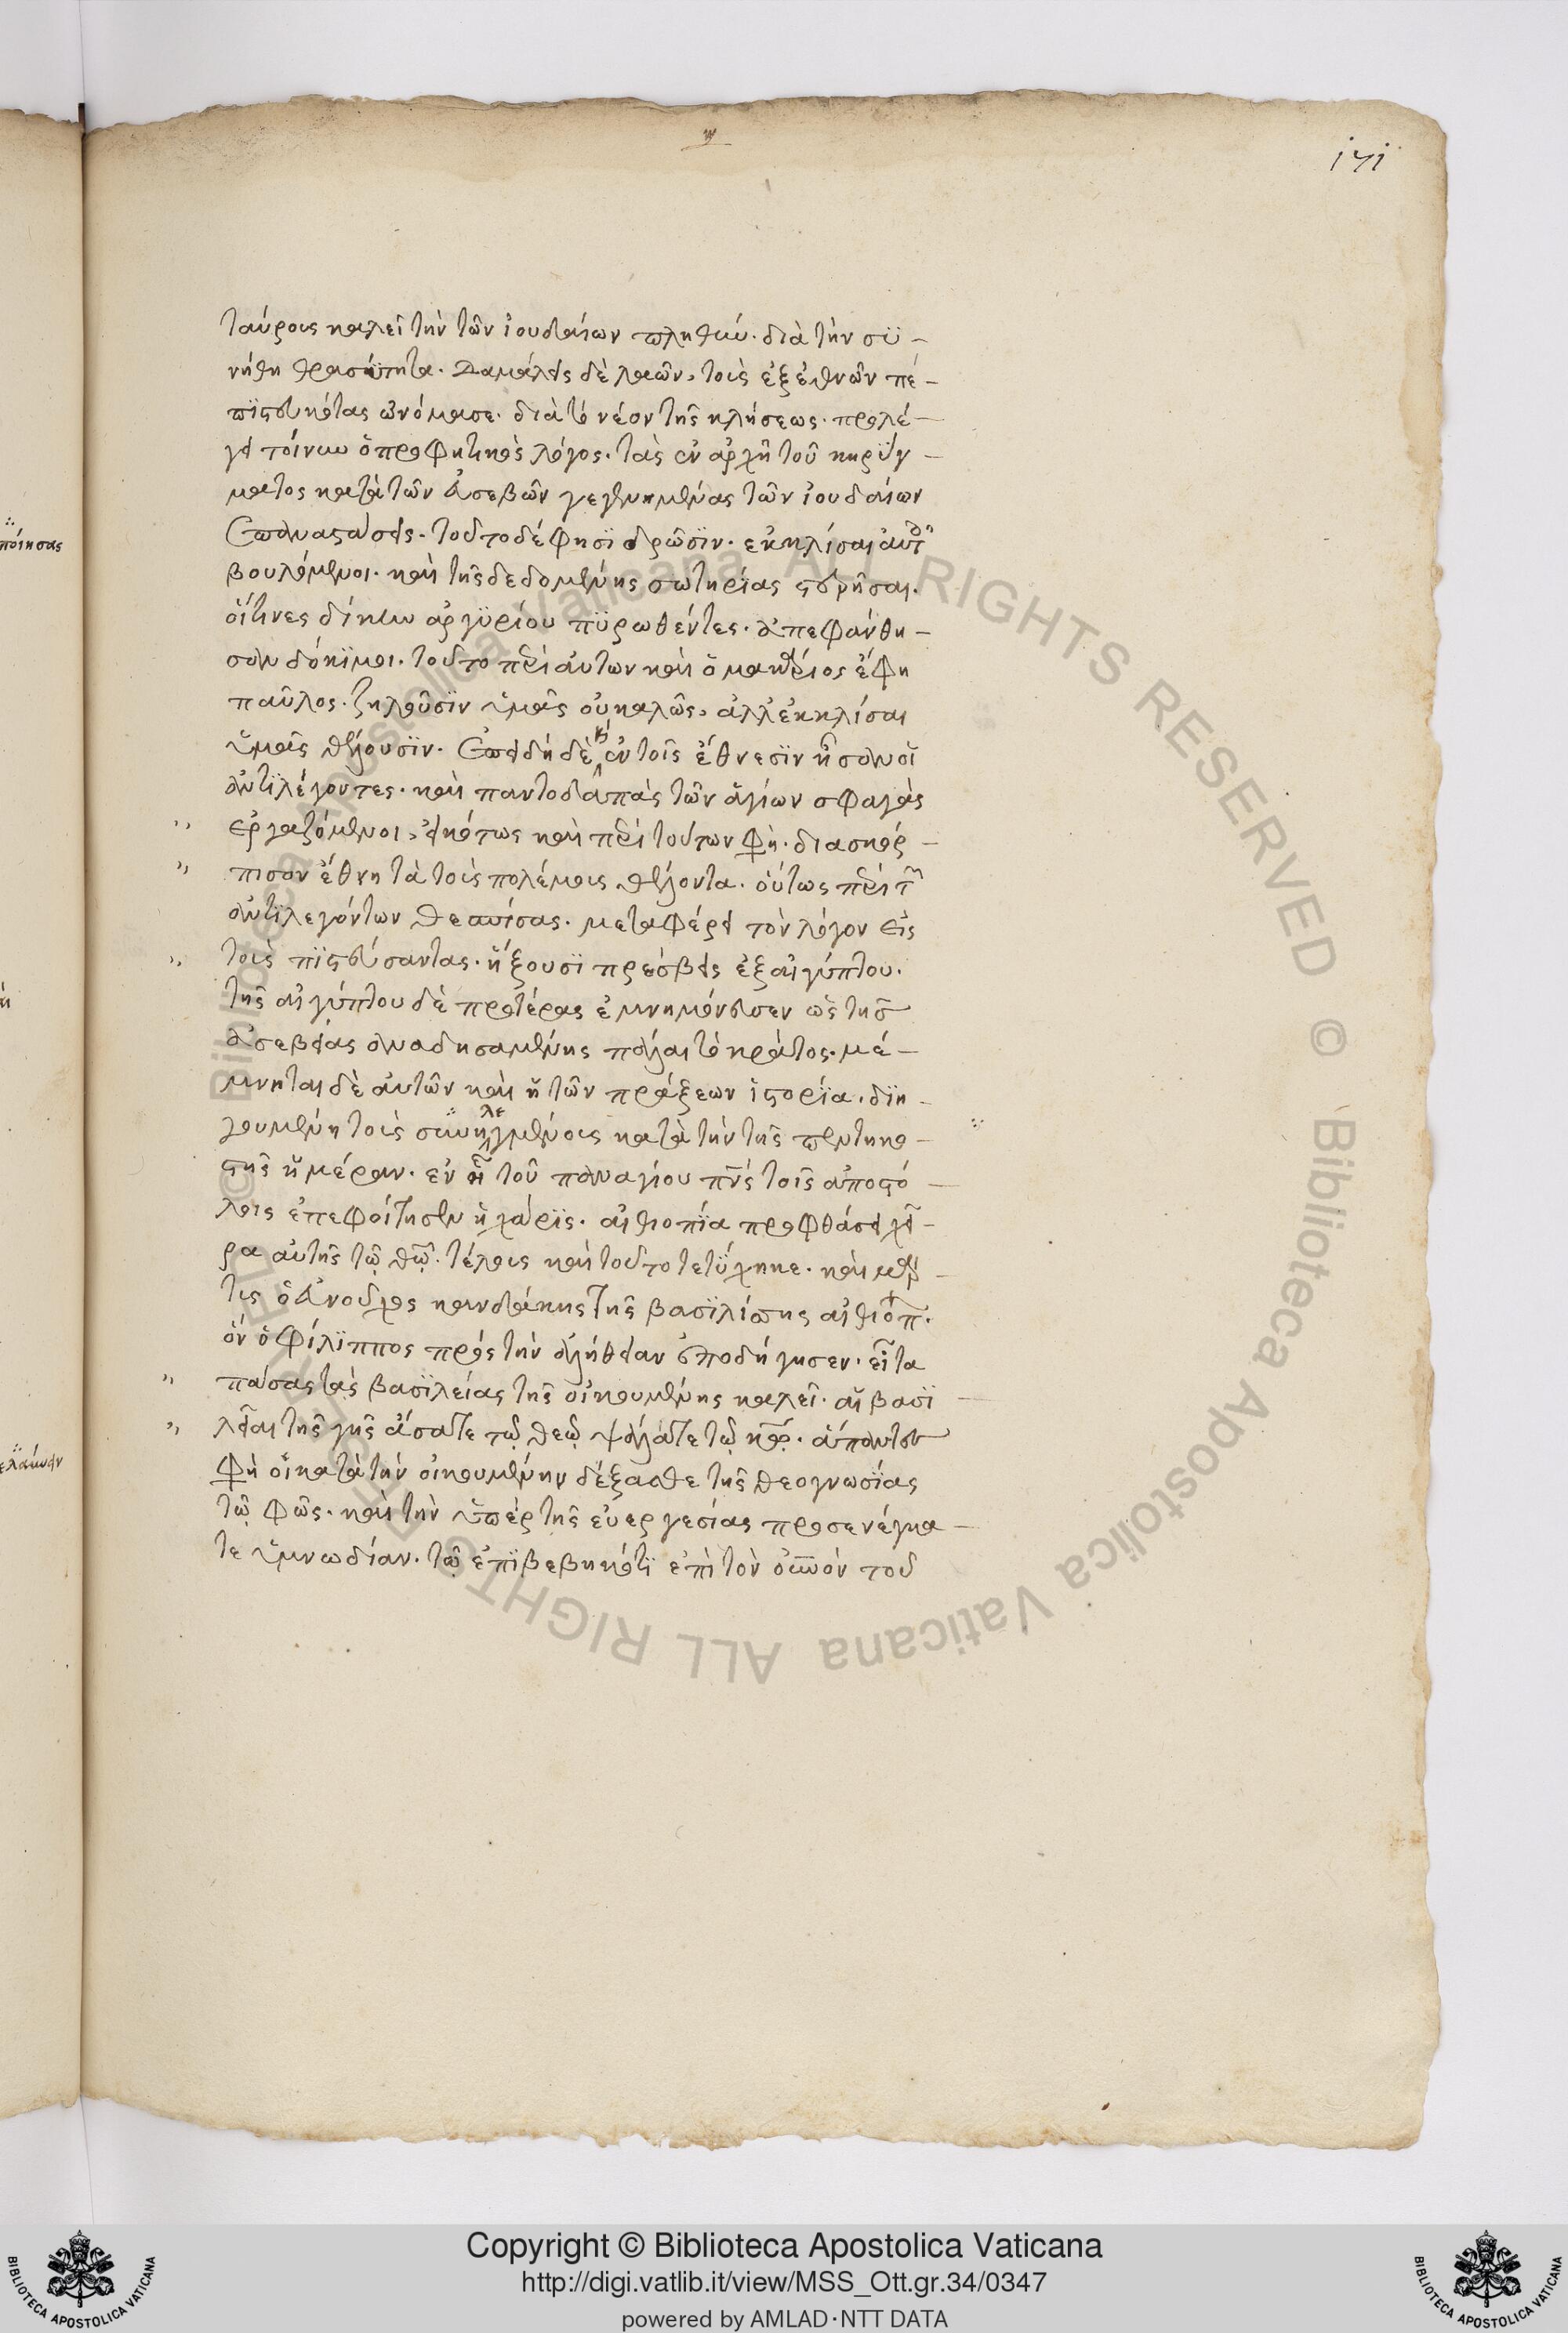 171
ταύρους καλεῖ τὴν τῶν ἰουδαίων πληθύν. διὰ τὴν συ –
νήθη θρασύτητα. Δαμάλεις δὲ λαῶν, τοὺς ἐξ ἐθνῶν πε –
πιστευκότας ὠνόμασε. διὰ τὸ νέον τῆς κλήσεως. προλέ –
γει τοίνυν ὁ προφητικὸς λόγος. τὰς ἐν ἀρχῇ τοῦ κηρύγ –
ματος κατὰ τῶν ἀσεβῶν γεγενημένας τῶν ἰουδαίων
ἐπαναστάσεις. τοῦτο δέ φησι δρῶσιν. ἐκκλῖσαι αὐτοὺς
βουλόμενοι. καὶ τῆς δεδομένης σωτηρίας στερῆσαι.
οἵτινες δίκην ἀργυρίου πυρωθέντες. ἀπεφάνθη –
σαν δόκιμοι. τοῦτο περὶ αὐτῶν καὶ ὁ μακάριος ἔφη
παῦλος. ζηλοῦσιν ὑμᾶς οὐ καλῶς, ἀλλ' ἐκκλῖσαι
ὑμᾶς θέλουσιν. ἐπειδὴ δὲ καὶ ἐν τοῖς ἔθνεσιν ἦσαν οἱ
ἀντιλέγοντες. καὶ παντοδαπὰς τῶν ἁγίων σφαγὰς
ἐργαζόμενοι, εἰκότως καὶ περὶ τούτων φη. διασκόρ –
πισον ἔθνη τὰ τοὺς πολέμους θέλοντα. οὕτως περὶ τῶν
ἀντιλεγόντων θεσπίσας. μεταφέρει τὸν λόγον εἰς
τοὺς πιστεύσαντας. ἥξουσι πρέσβεις ἐξ αἰγύπτου.
τῆς αἰγύπτου δὲ προτέρας ἐμνημόνευσεν ὡς τῆς
ἀσεβείας ἀναδησαμένης πάλαι τὸ κράτος. μέ –
μνηται δὲ αὐτῶν καὶ ἡ τῶν πράξεων ἱστορία. διη –
γουμένη τοὺς συνειλεγμένους κατὰ τὴν τῆς πεντηκο –
στῆς ἡμέραν. ἐν ᾗ τοῦ παναγίου πνς τοῖς ἀποστό –
λοις ἐπεφοίτησεν ἡ χάρις. αἰθιοπία προφθάσει χεῖ –
ρα αὐτῆς τῷ θῷ. τέλους καὶ τοῦτο τετύχηκε. καὶ μάρ –
τυς ὁ εὐνοῦχος κανδάκης τῆς βασιλίσσης αἰθιόπ.
ὃν ὁ φίλιππος πρὸς τὴν ἀλήθειαν ἐποδήγησεν. εἶτα
πάσας τὰς βασιλείας τῆς οἰκουμένης καλεῖ. αἱ βασι –
λεῖαι τῆς γῆς ᾄσατε τῷ θεῷ ψάλατε τῷ κῷ. ἅπαντες
φη οἱ κατὰ τὴν οἰκουμένην δέξασθε τῆς θεογνωσίας
τῶ φῶς. καὶ τὴν ὑπὲρ τῆς εὐεργεσίας προσενέγκα –
τε ὑμνωδίαν. τῷ ἐπιβεβηκότι ἐπὶ τὸν οὐνὸν τοῦ
ποίησας
© Biblioteca Apostolica Vaticana ALL RIGHTS RESERVED © Biblioteca Apostolica Vaticana ALL RIGHTS RESERVED
Copyright © Biblioteca Apostolica Vaticana
http://digi.vatlib.it/view/MSS_Ott.gr.34/0347
powered by AMLAD·NTT DATA
BIBLIOTECA APOSTOLICA VATICANA
BIBLIOTECA APOSTOLICA VATICANA